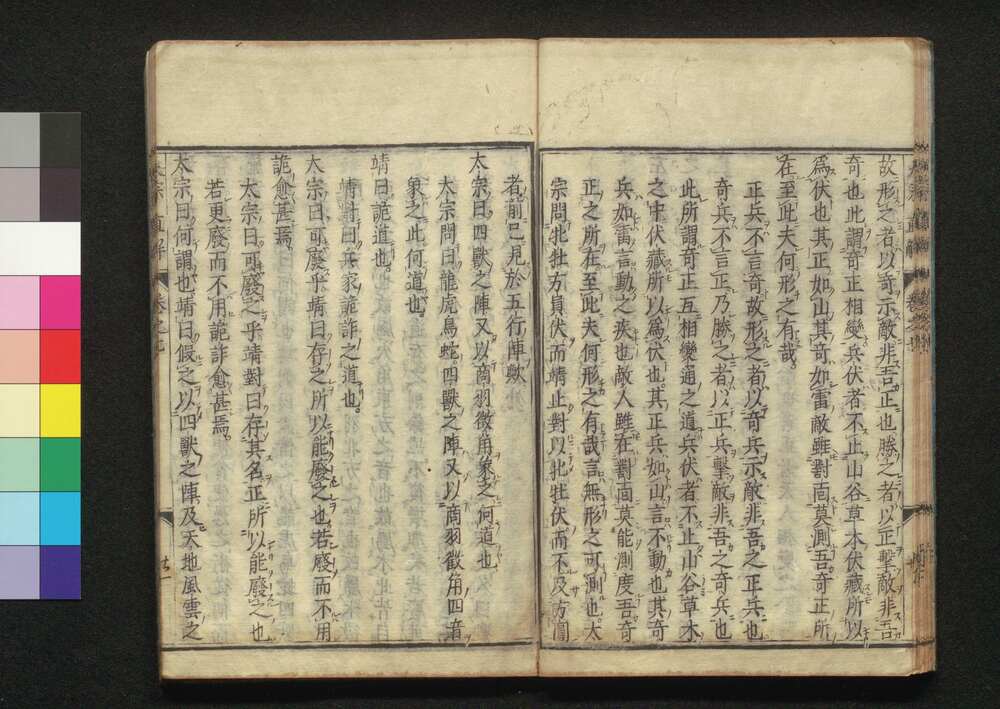 故形之者以奇示敵非吾正也勝之者以正擊敵非吾
奇也此謂奇正相變兵伏者不止山谷草木伏藏所以
爲伏也其正如山其奇如雷敵雖對面莫測吾奇正所
在至此夫何形之有哉
正兵不言奇故形之者以奇兵示敵非吾之正兵也
奇兵不言正乃勝之者以正兵擊敵非吾之奇兵也
此所謂奇正互相變通之道兵伏者不止山谷草木
之中伏藏所以爲伏也其正兵如山言不動也其奇
兵如雷言動之疾也敵人雖在對面莫能測度吾奇
正之所在至此夫何形之有哉言無形之可測也太
宗問牝牡方員伏而靖止對以牝牡伏而不及方圓
者前已見於五行陣歟
太宗曰四獸之陣又以商羽徵角象之何道也
太宗問曰龍虎鳥蛇四獸之陣又以商羽徵角四音
象之此何道也
靖曰詭道也
靖對曰兵家詭詐之道也
太宗曰可廢乎靖曰存之所以能廢之也若廢而不用
詭愈甚焉
太宗曰可廢之乎靖對曰存其名正所以能廢之也
若更廢而不用詭詐愈甚焉
太宗曰何謂也靖曰假之以四獸之陣及天地風雲之